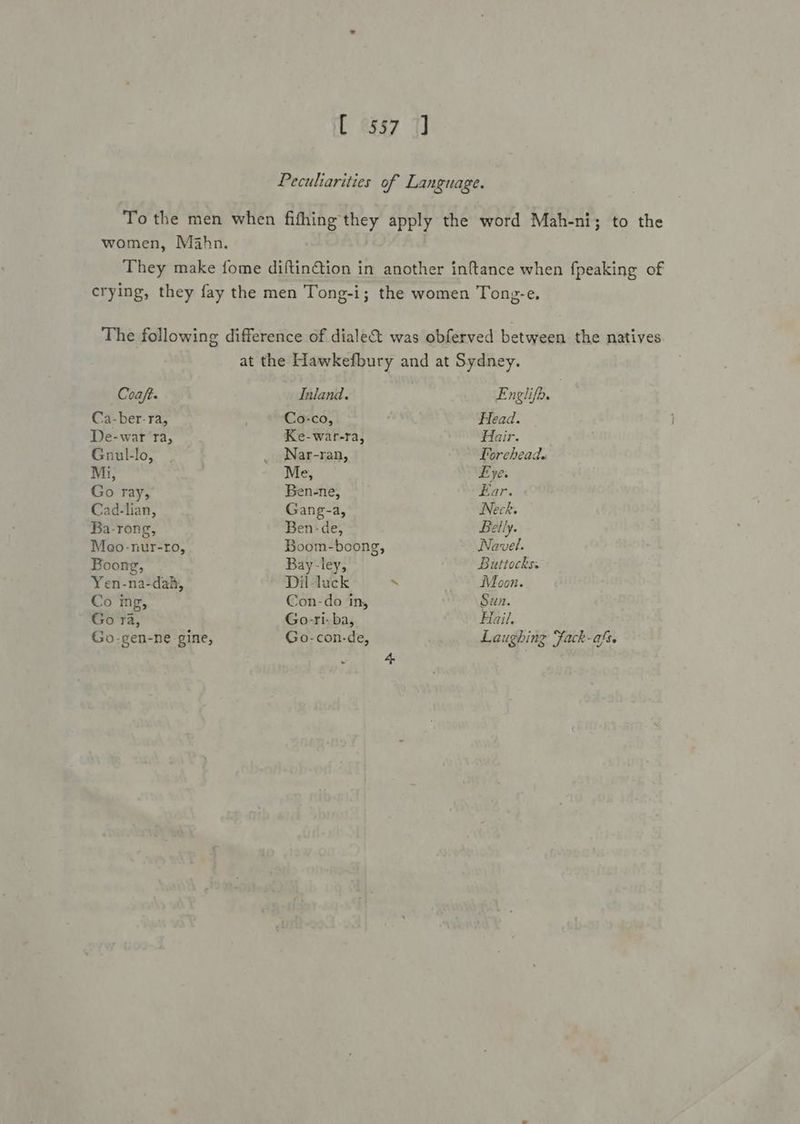 [ 557 ]
Peculiarities of Language.
To the men when fiſhing they apply the word Mah-ni; to the
women, Māhn.
They make ſome diſtinction in another inſtance when ſpeaking of
crying, they ſay the men Tong-i; the women Tong-e.
The following difference of dialect was obſerved between the natives
at the Hawkeſbury and at Sydney.
Coaſt. Inland. Engliſh.
Ca-ber-ra, Co-co, Head.
De-war ra, Ke-war-ra, Hair.
Gnul-lo, Nar-ran, Forehead.
Mi, Me, Eye.
Go ray, Ben-ne, Ear.
Cad-lian, Gang-a, Neck.
Ba-rong, Ben-de, Belly.
Moo-nur-ro, Boom-boong, Navel.
Boong, Bay-ley, Buttocks.
Yen-na-dah, Dil-luck Moon.
Co ing, Con-do in, Sun.
Go rā, Go-ri-ba, Hail.
Go-gen-ne gine, Go-con-de, Laughing Jack-aſs.
4